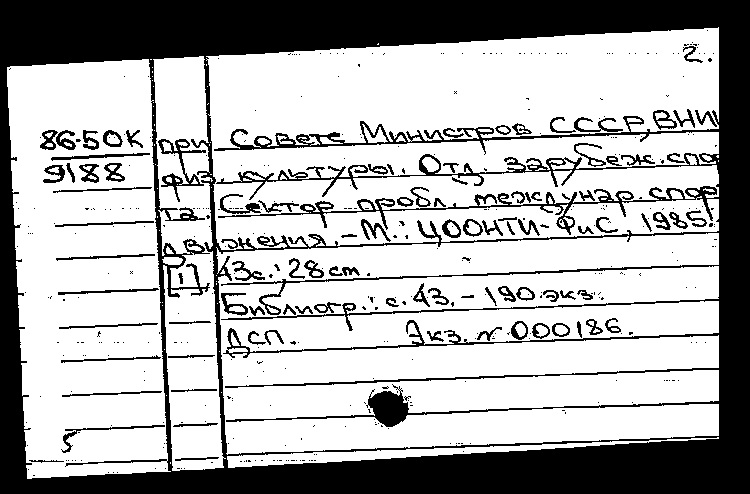 2.
86-50К при Совете Министров СССР, ВНИИ
9188 физ. культуры. Отд. зарубеж. спор
та. Сектор пробл. междунар. спорт
движения. – М.: ЦООНТИ-ФиС, 1985.
[1] 43с.; 28 cm.
Библиогр.: с. 43. – 190 экз.
ДСП. Экз. N 000186.
5